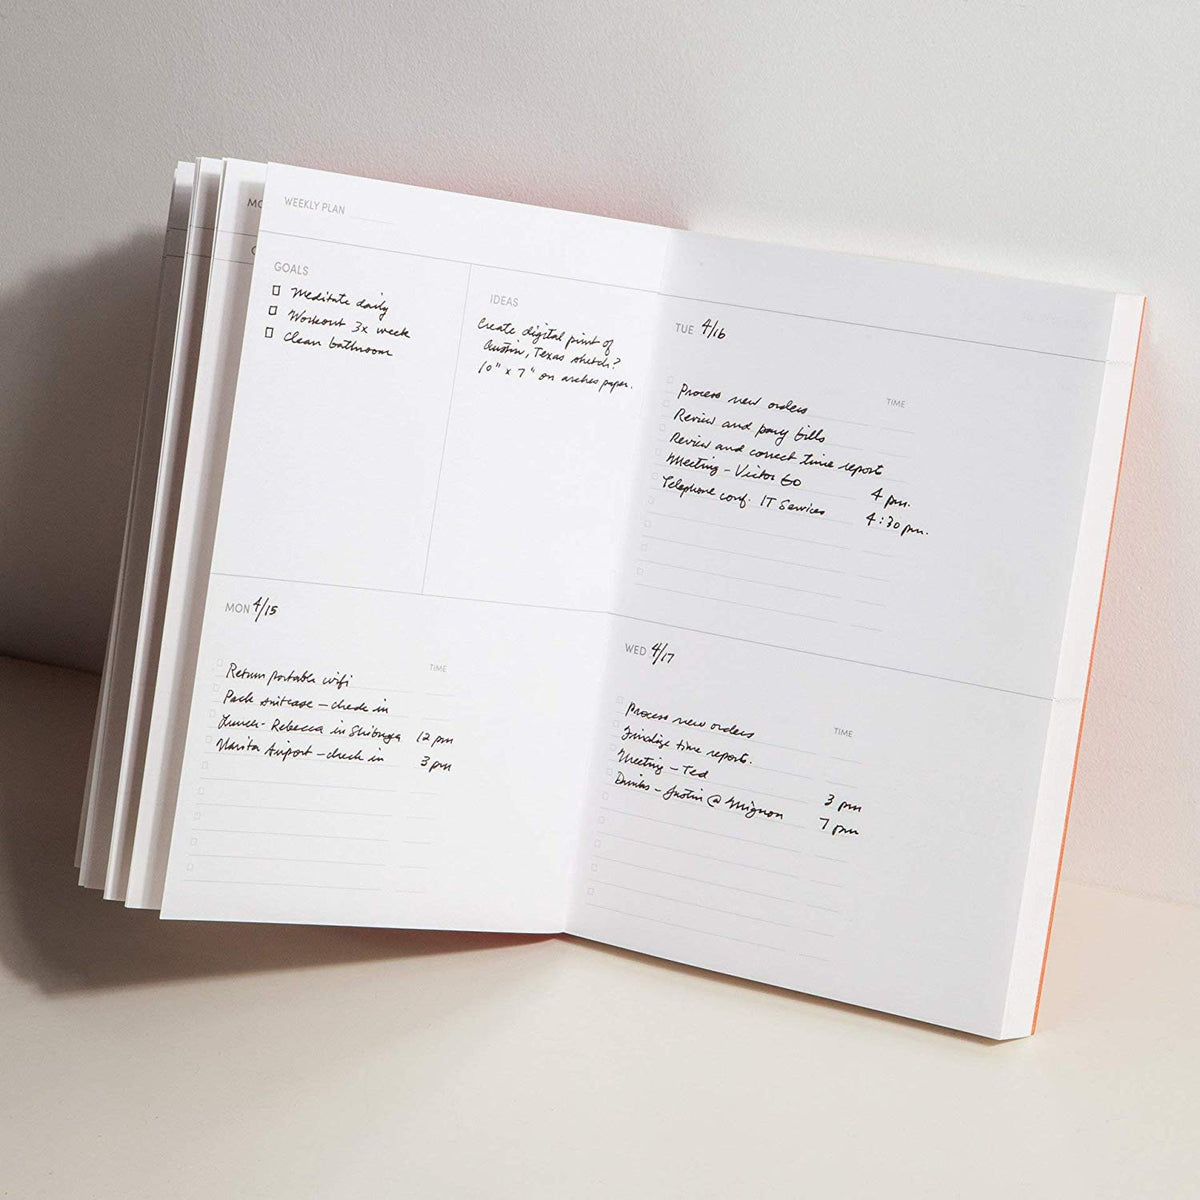 WEEKLY PLAN
GOALS
Meditate daily
Workout 3x week
Clean bathroom
IDEAS
Create digital print of
Austin, Texas sketch?
10" x 7" on arches paper.
MON 4/15
TIME
Return portable wifi
Pack suitcase – check in
Lunch - Rebecca in Shibuya 12 pm
Narita Airport – check in 3 pm
TUE 4/16
TIME
Process new orders
Review and pay bills
Review and correct time reports
Meeting – Victor Go 4 pm.
Telephone conf. IT Services 4:30 pm.
WED 4/17
TIME
Process new orders
Finalize time reports.
Meeting – Ted 3 pm
Drinks – Justin @ Mignon 7 pm